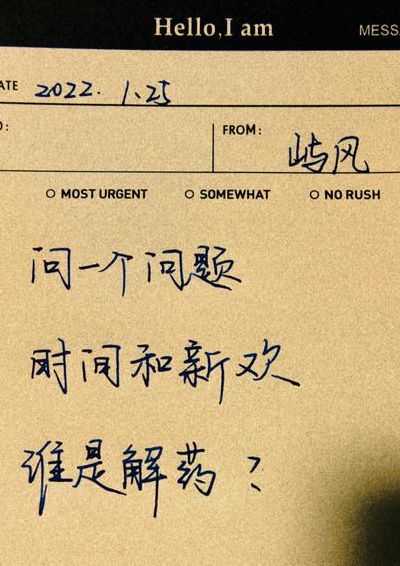 Hello, I am
MESSA
ATE 2022. 1.25
O:
FROM: 屿风
MOST URGENT SOMEWHAT NO RUSH
问一个问题
时间和新欢
谁是解药？